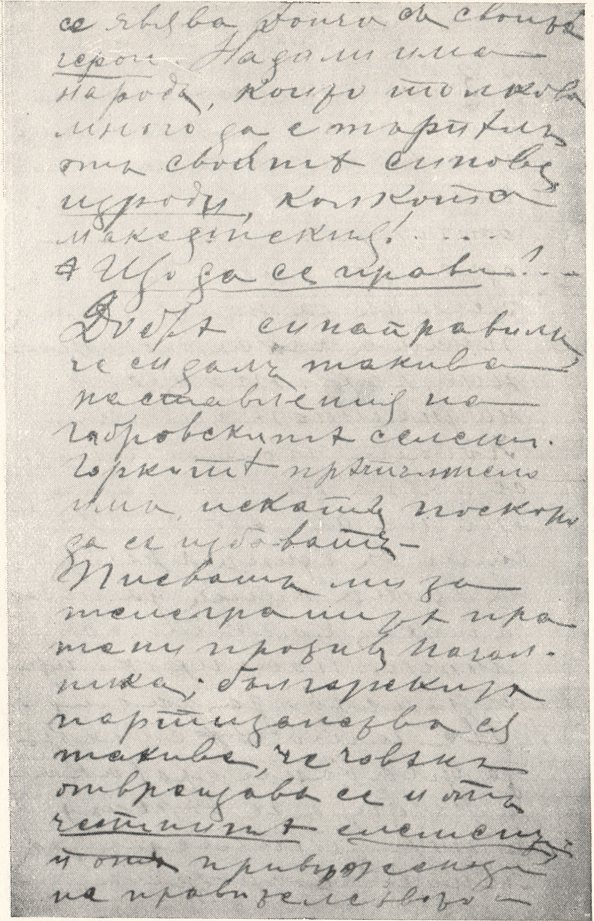 се явява Дончо съ своитѣ
герои. Надали има
народъ, който толкова
много да е търпѣлъ
отъ своитѣ синове
изроди, колкото
македонския! . . . .
Що да се прави! . . -
Добрѣ си направилъ
че си далъ такива
наставления на
габровскитѣ селени.
Горкитѣ
има, искатъ поскоро
да се избаватъ —
Писвашъ ми за
телеграмитѣ пра
тени противъ Начал-
ника; българскитѣ
партизанства сѫ
такива, че човѣкъ
отвращава се и отъ
честнитѣ
и отъ привърженици
на правителството —